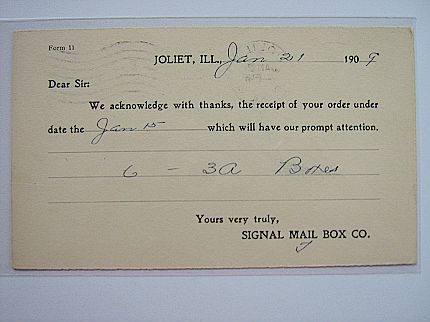 Form 11
JOLIET, ILL., Jan 21 1909
Dear Sir:
We acknowledge with thanks, the receipt of your order under
date the Jan 15 which will have our prompt attention.
6 - 3a Boxes
Yours very truly,
SIGNAL MAIL BOX CO.